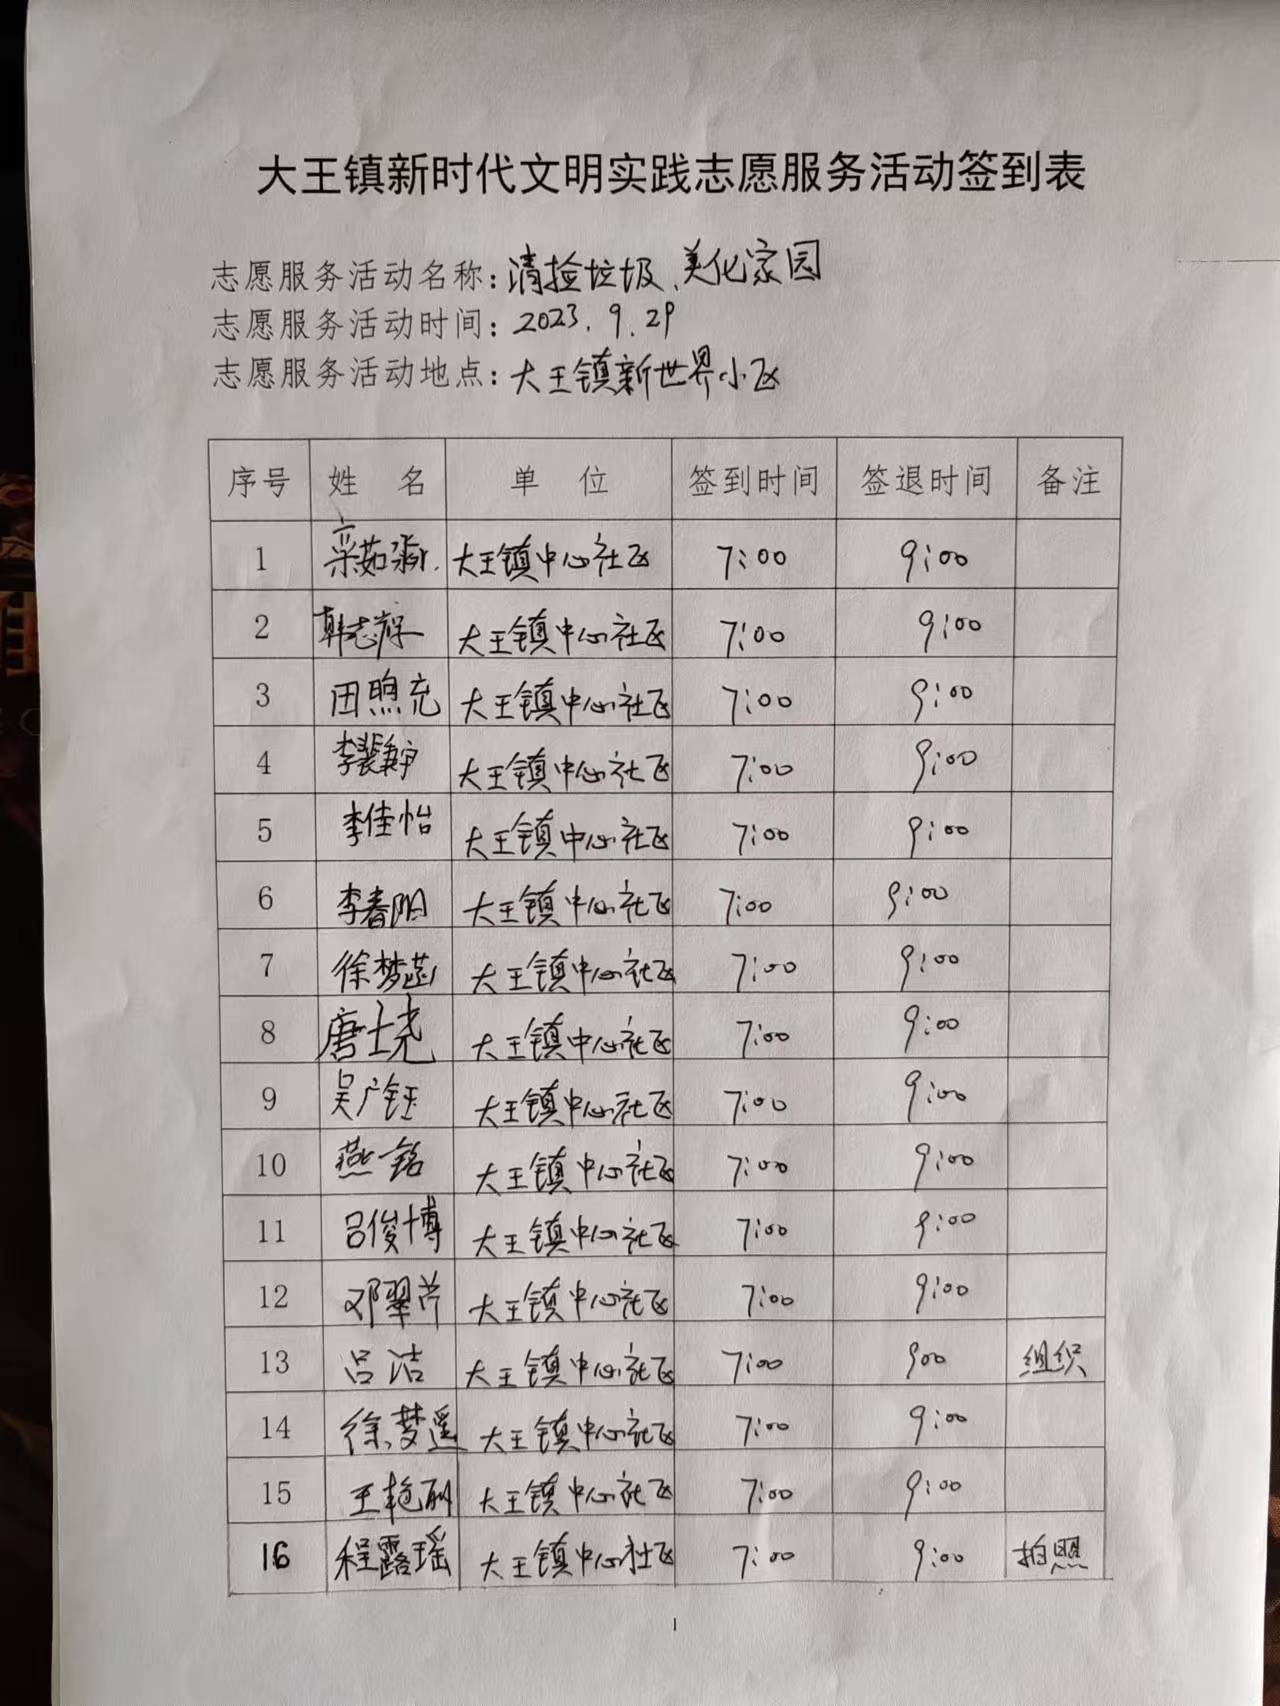 大王镇新时代文明实践志愿服务活动签到表
志愿服务活动名称：清捡垃圾、美化家园
志愿服务活动时间：2023.9.29
志愿服务活动地点：大王镇新世界小区
序号 姓 名 单 位 签到时间 签退时间 备注
1 大王镇中心社区 7:00 9:00
2 韩志 大王镇中心社区 7:00 9:00
3 田煦充 大王镇中心社区 7:00 9:00
4 李 大王镇中心社区 7:00 9:00
5 李佳怡 大王镇中心社区 7:00 9:00
6 李春阳 大王镇中心社区 7:00 9:00
7 徐梦菡 大王镇中心社区 7:00 9:00
8 唐士尧 大王镇中心社区 7:00 9:00
9 吴广钰 大王镇中心社区 7:00 9:00
10 燕铭 大王镇中心社区 7:00 9:00
11 吕俊博 大王镇中心社区 7:00 9:00
12 邓翠芹 大王镇中心社区 7:00 9:00
13 吕洁 大王镇中心社区 7:00 900 组织
14 徐梦遥 大王镇中心社区 7:00 9:00
15 王艳丽 大王镇中心社区 7:00 9:00
16 程露瑶 大王镇中心社区 7:00 9:00 拍照
1